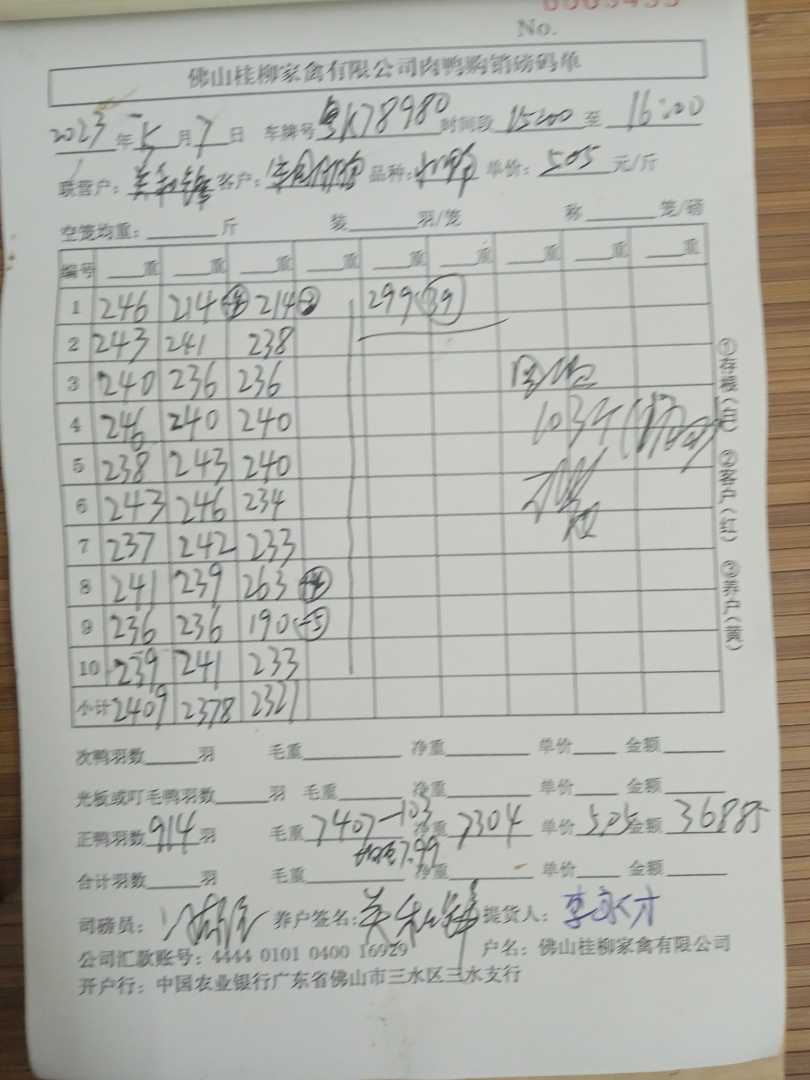 No.
佛山桂柳家禽有限公司肉鸭购销磅码单
2023年5月7日 车牌号 粤K78980 时间段 15:00 至 16:00
联营户: 客户: 品种: 单价: 505 元/斤
空笼均重: 斤 装 羽/笼 称 笼/磅
编号 重 重 重 重 重 重 重 重 重
1 246 214 214 299 39
2 243 241 238
3 240 236 236
4 246 240 240
5 238 243 240
6 243 246 234
7 237 242 233
8 241 239 263
9 236 236 190 -5
10 239 241 233
小计 2409 2378 2321
①存根(白) ②客户(红) ③养户(黄)
次鸭羽数 羽 毛重 净重 单价 金额
光板或叮毛鸭羽数 羽 毛重 净重 单价 金额
正鸭羽数 914 羽 毛重 7407-103 净重 7304 单价 505 金额 36885
7.99
合计羽数 羽 毛重 净重 单价 金额
司磅员: 养户签名: 提货人: 李永才
公司汇款账号: 4444 0101 0400 16929 户名: 佛山桂柳家禽有限公司
开户行: 中国农业银行广东省佛山市三水区三水支行